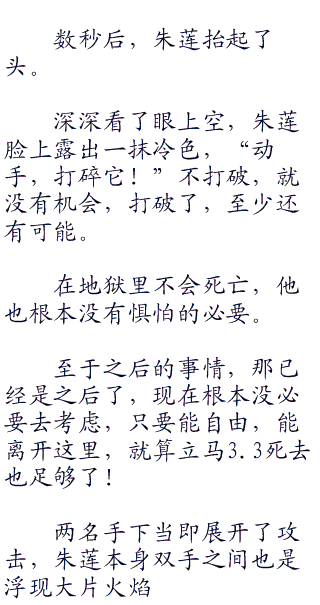 数秒后，朱莲抬起了
头。
深深看了眼上空，朱莲
脸上露出一抹冷色，“动
手，打碎它！”不打破，就
没有机会，打破了，至少还
有可能。
在地狱里不会死亡，他
也根本没有惧怕的必要。
至于之后的事情，那已
经是之后了，现在根本没必
要去考虑，只要能自由，能
离开这里，就算立马3.3死去
也足够了！
两名手下当即展开了攻
击，朱莲本身双手之间也是
浮现大片火焰